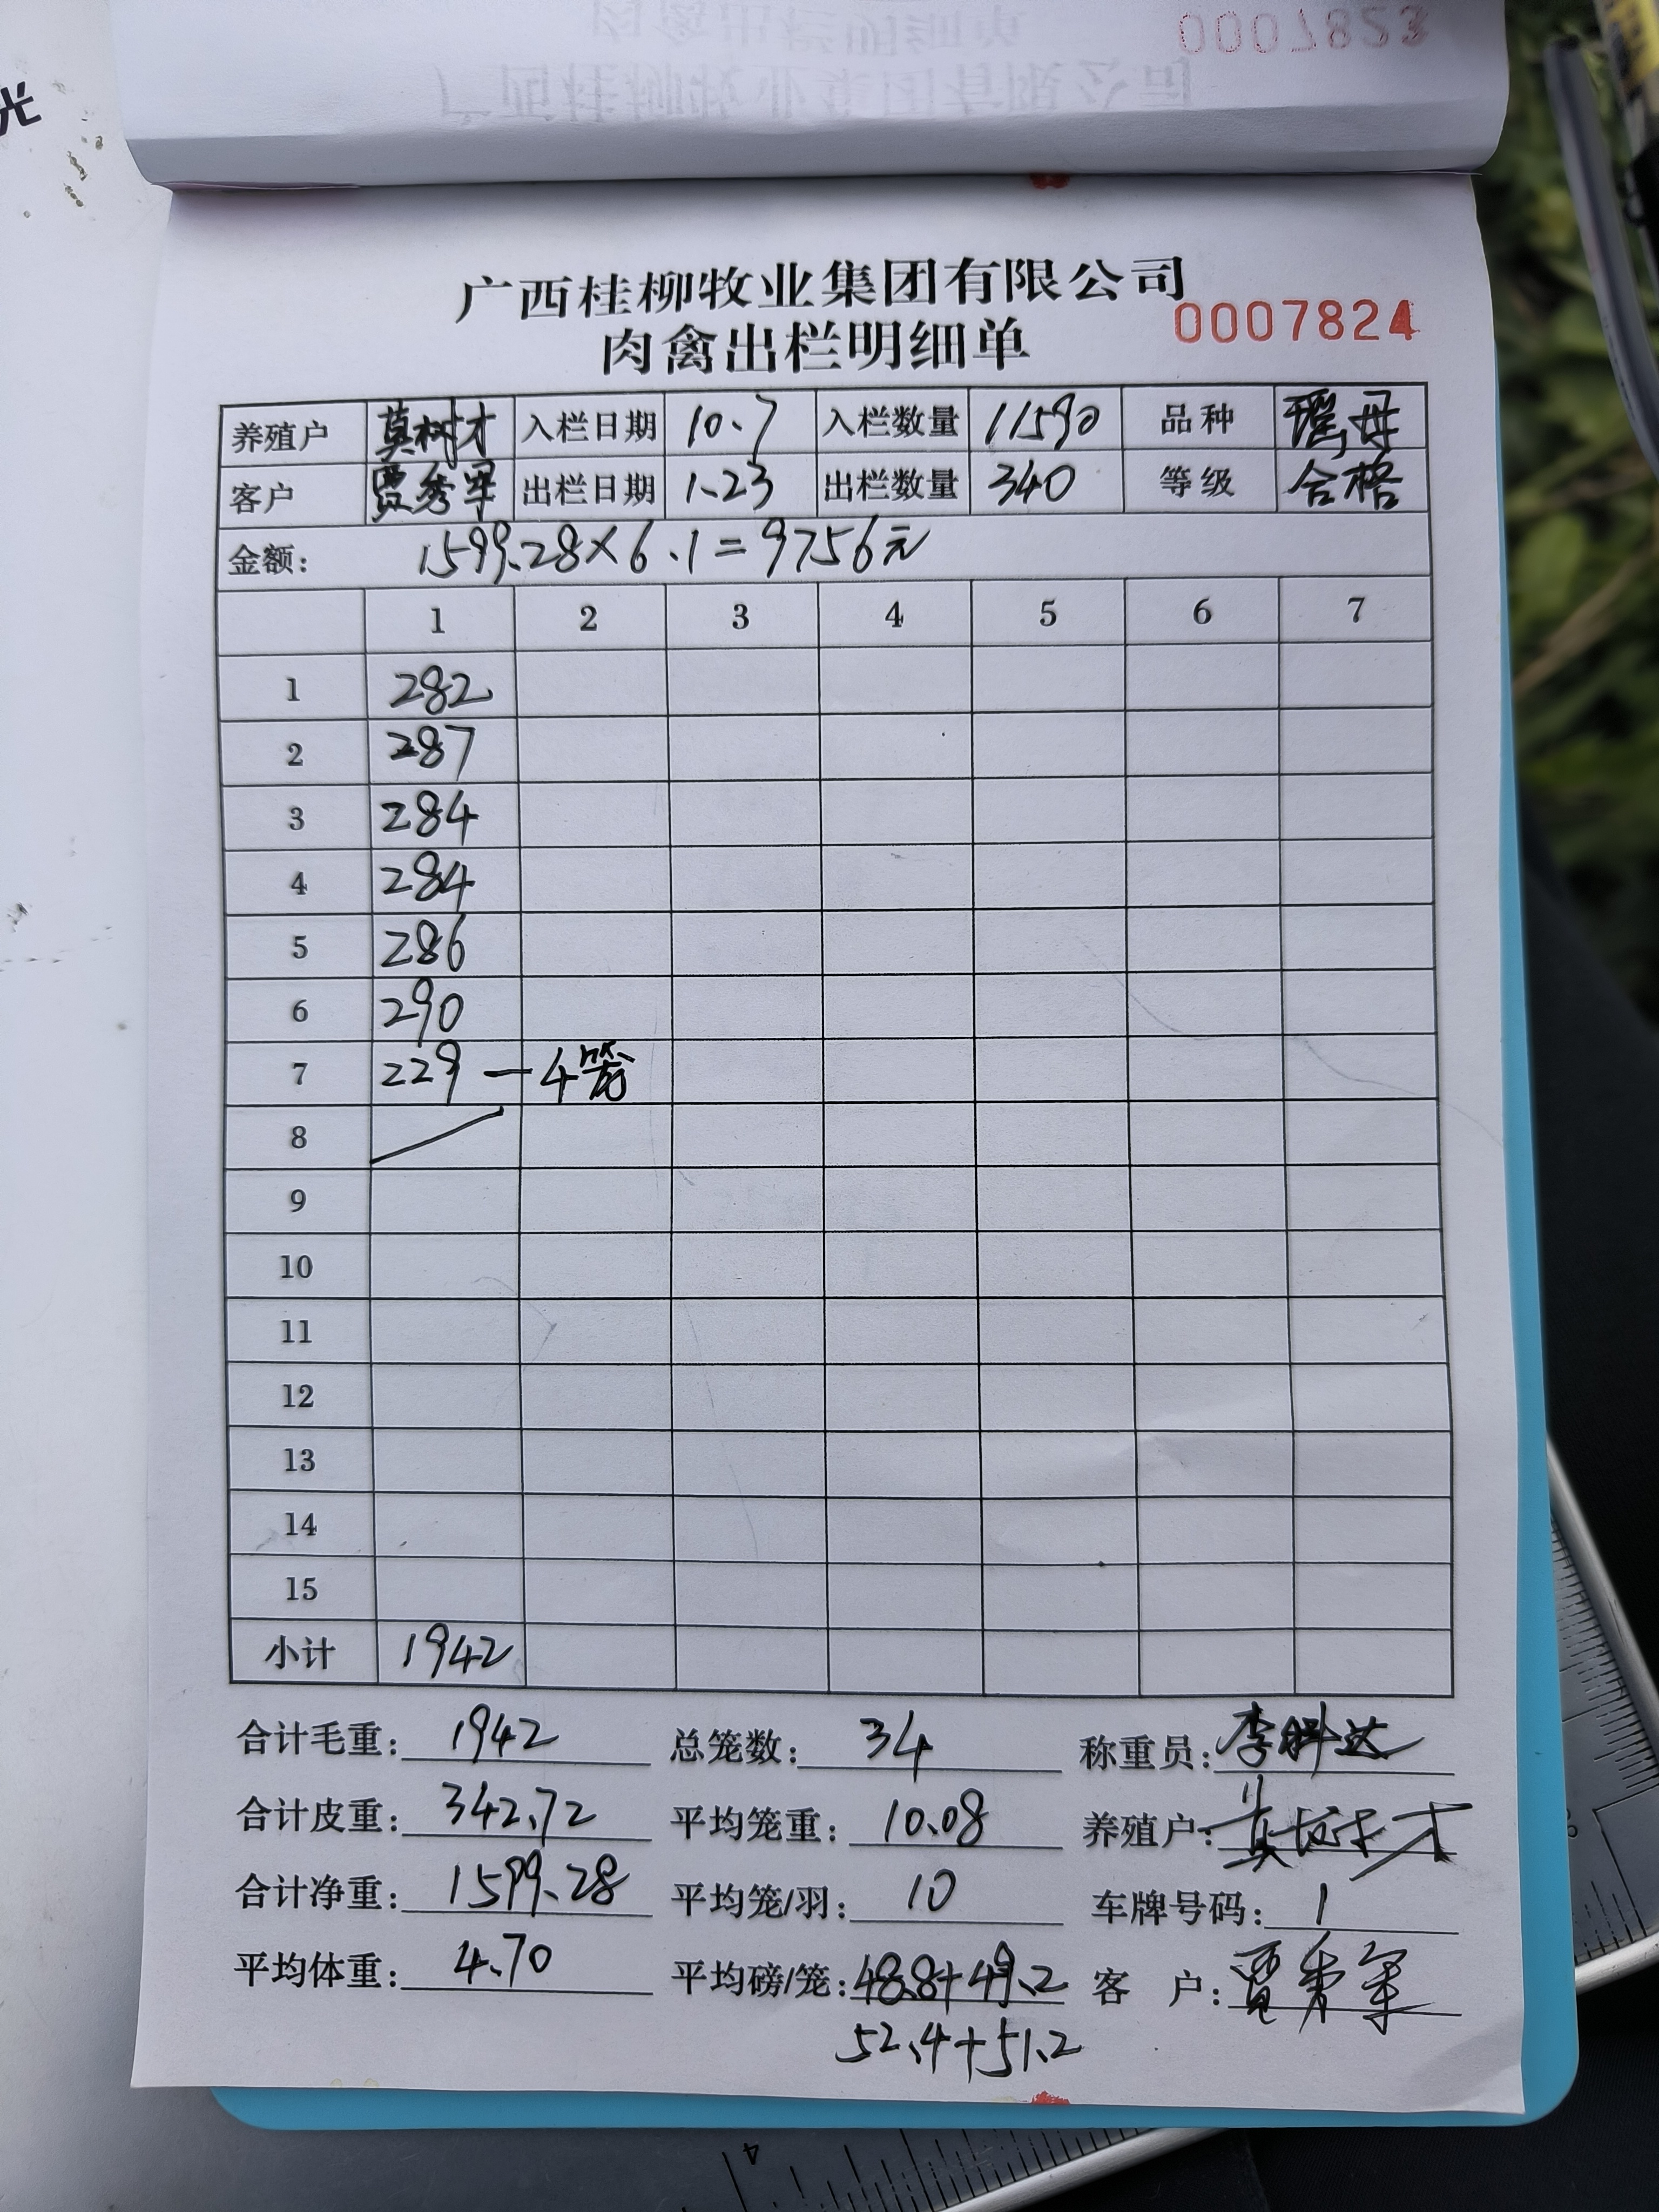 光
0007823
广西桂柳牧业集团有限公司
0007824
肉禽出栏明细单
养殖户 莫树才 入栏日期 10.7 入栏数量 11590 品种 瑶母
客户 贾秀军 出栏日期 1.23 出栏数量 340 等级 合格
金额: 1599.28×6.1=9756元
1 2 3 4 5 6 7
1 282
2 287
3 284
4 284
5 286
6 290
7 229 — 4笼
8
9
10
11
12
13
14
15
小计 1942
合计毛重: 1942 总笼数: 34 称重员: 李科达
合计皮重: 342.72 平均笼重: 10.08 养殖户: 莫树才
合计净重: 1599.28 平均笼/羽: 10 车牌号码: 1
平均体重: 4.70 平均磅/笼: 48.8+49.2 客 户: 贾秀军
52.4+51.2